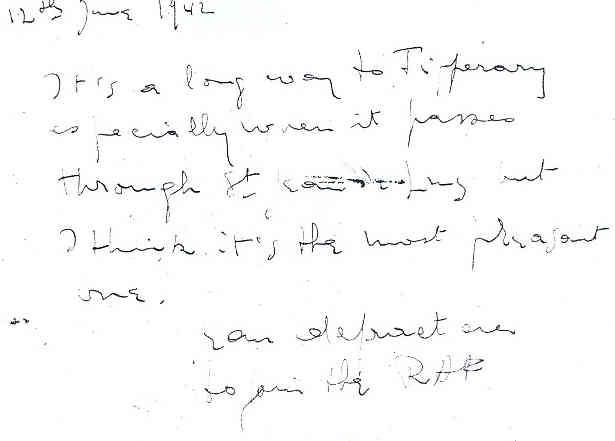 12th June 1942
It's a long way to Tipperary
especially when it passes
through St but
I think it's the most pleasant
one.
to join the RAF